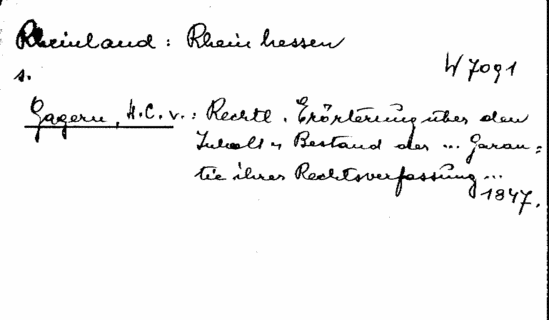 Rheinland: Rheinhessen
W 7091
s.
Gagern, H.C.v.: Rechtl. Erörterung über den
Inhalt u. Bestand der ... Garan=
tie ihrer Rechtsverfassung ...
1847.